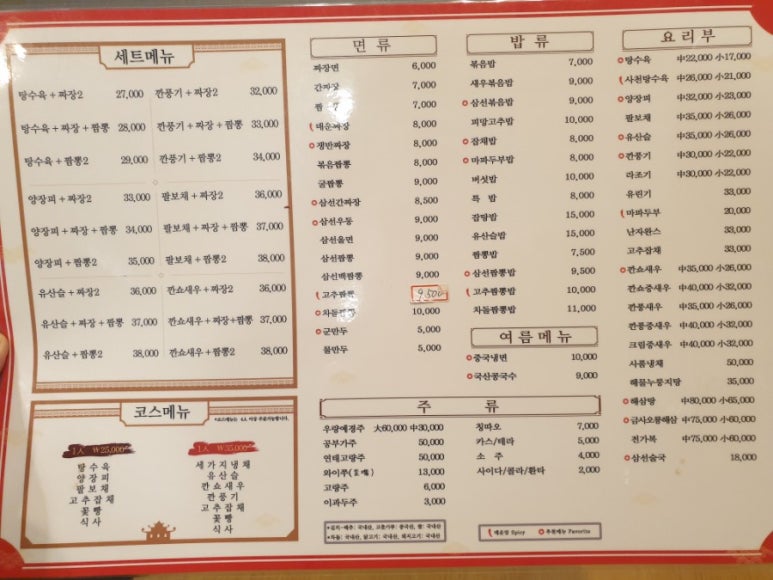 세트메뉴
탕수육 + 짜장2 27,000 깐풍기 + 짜장2 32,000
탕수육 + 짜장 + 짬뽕 28,000 깐풍기 + 짜장 + 짬뽕 33,000
탕수육 + 짬뽕2 29,000 깐풍기 + 짬뽕2 34,000
양장피 + 짜장2 33,000 팔보채 + 짜장2 36,000
양장피 + 짜장 + 짬뽕 34,000 팔보채 + 짜장 + 짬뽕 37,000
양장피 + 짬뽕2 35,000 팔보채 + 짬뽕2 38,000
유산슬 + 짜장2 36,000 깐쇼새우 + 짜장2 36,000
유산슬 + 짜장 + 짬뽕 37,000 깐쇼새우 + 짜장 + 짬뽕 37,000
유산슬 + 짬뽕2 38,000 깐쇼새우 + 짬뽕2 38,000
코스메뉴
*코스메뉴는 4人 이상 주문가능합니다.
1人 ₩25,000
탕수육
양장피
팔보채
고추잡채
꽃빵
식사
1人 ₩35,000
세가지냉채
유산슬
깐쇼새우
깐풍기
고추잡채
꽃빵
식사
면류
짜장면 6,000
간짜장 7,000
짬 7,000
매운짜장 8,000
쟁반짜장 8,000
볶음짬뽕 8,000
굴짬뽕 9,000
삼선간짜장 8,500
삼선우동 9,000
삼선울면 9,000
삼선짬뽕 9,000
삼선백짬뽕 9,000
고추짬뽕 9,500
차돌짬뽕 10,000
군만두 5,000
물만두 5,000
밥류
볶음밥 7,000
새우볶음밥 9,000
삼선볶음밥 9,000
피망고추밥 10,000
잡채밥 8,000
마파두부밥 8,000
버섯밥 10,000
특밥 8,000
잡탕밥 15,000
유산슬밥 15,000
짬뽕밥 7,500
삼선짬뽕밥 9,500
고추짬뽕밥 10,000
차돌짬뽕밥 11,000
여름메뉴
중국냉면 10,000
국산콩국수 9,000
주류
우량예경주 大60,000 中30,000
공부가주 50,000
연태고량주 50,000
와이쭈 13,000
고량주 6,000
이과두주 3,000
칭따오 7,000
카스/테라 5,000
소주 4,000
사이다/콜라/환타 2,000
*김치-배추: 국내산, 고춧가루: 중국산, 쌀: 국내산
*차돌: 국내산, 닭고기: 국내산, 돼지고기: 국내산
매운맛 Spicy 추천메뉴 Favorite
요리부
탕수육 中22,000 小17,000
사천탕수육 中26,000 小21,000
양장피 中32,000 小23,000
팔보채 中35,000 小26,000
유산슬 中35,000 小26,000
깐풍기 中30,000 小22,000
라조기 中30,000 小22,000
유린기 33,000
마파두부 20,000
난자완스 33,000
고추잡채 33,000
깐쇼새우 中35,000 小26,000
깐쇼중새우 中40,000 小32,000
깐풍새우 中35,000 小26,000
깐풍중새우 中40,000 小32,000
크림중새우 中40,000 小32,000
사품냉채 50,000
해물누룽지탕 35,000
해삼탕 中80,000 小65,000
금사오룡해삼 中75,000 小60,000
전가복 中75,000 小60,000
삼선술국 18,000